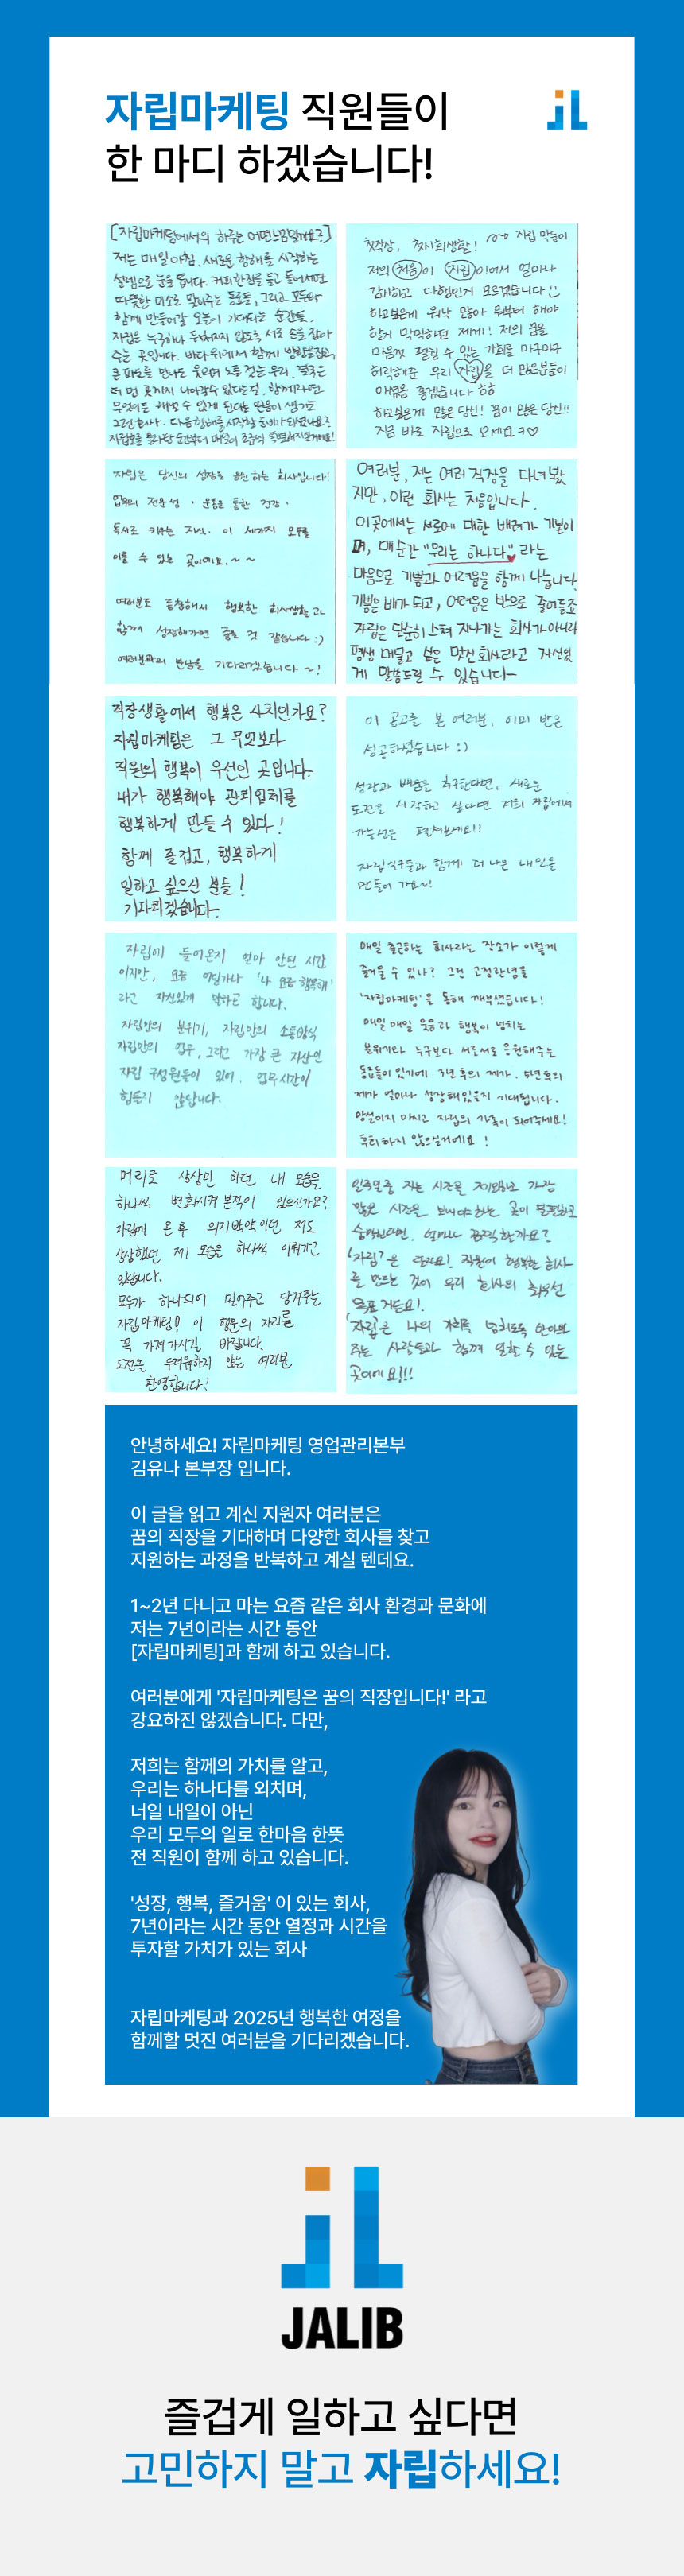 자립마케팅 직원들이
한 마디 하겠습니다!
[자립마케팅에서의 하루는 어떤느낌일까요?]
저는 매일 아침, 새로운 항해를 시작하는
설렘으로 눈을 뜹니다. 커피한잔을 들고 들어서면
따뜻한 미소로 맞아주는 동료들, 그리고 모두와
함께 만들어갈 오늘이 기대되는 순간들.
자립은 누구하나 두려워지 않도록 서로 손을 잡아
주는 곳입니다. 바다위에서 함께 방향을잡고,
큰 파도를 만나도 웃으며 노를 젓는 우리.
더 먼 곳까지 나아갈수 있다는걸, 함께라면
무엇이든 해낼 수 있게 된다는 믿음이 생기는
그런 회사. 다음항해를 시작할 준비가 되셨나요?
첫직장, 첫사회생활! 자립 막둥이
저의 처음이 자립이어서 얼마나
감사하고 다행인지 모르겠습니다
하고싶은게 워낙 많아 무엇부터 해야
할지 막막하던 제게! 저의 꿈을
마음껏 펼칠 수 있는 기회를 마구마구
허락해준 우리 자립을 더 많은분들이
아셨음 좋겠습니다 ㅎㅎ
하고싶은게 많은 당신! 꿈이 많은 당신!!
지금 바로 자립으로 오세요 ㅋ♡
자립은 당신의 성장을 응원하는 회사입니다!
업무의 전문성 · 운동을 통한 건강 ·
독서로 키우는 지식. 이 세가지 모두를
이룰 수 있는 곳이에요. ~ ~
여러분도 동참해서 행복한 회사생활과
함께 성장해가면 좋을 것 같습니다 :)
여러분과의 만남을 기다리겠습니다 ~!
여러분, 저는 여러 직장을 다녀봤
지만, 이런 회사는 처음입니다.
이곳에서는 서로에 대한 배려가 기본이
며, 매순간 "우리는 하나다"♥ 라는
마음으로 기쁨과 어려움을 함께 나눕니다
기쁨은 배가 되고, 어려움은 반으로 줄어들죠
자립은 단순히 스쳐 지나가는 회사가 아니라
평생 머물고 싶은 멋진 회사라고 자신있
게 말씀드릴 수 있습니다~
직장생활에서 행복은 사치인가요?
자립마케팅은 그 무엇보다
직원의 행복이 우선인 곳입니다.
내가 행복해야 관리업체를
행복하게 만들 수 있다!
함께 즐겁고, 행복하게
일하고 싶으신 분들!
기다리겠습니다~
이 공고를 본 여러분, 이미 반은
성공하셨습니다 :)
성장과 배움을 추구한다면, 새로운
도전을 시작하고 싶다면 저희 자립에서
가능성을 펼쳐보세요!!
자립식구들과 함께 더 나은 내일을
만들어 가요~!
자립에 들어온지 얼마 안된 시간
이지만, 요즘 어딜가나 '나 요즘 행복해'
라고 자신있게 말하곤 합니다.
자립만의 분위기, 자립만의 소통방식
자립만의 업무, 그리고 가장 큰 자산인
자립 구성원들이 있어, 업무시간이
힘든지 않답니다.
매일 출근하는 회사라는 장소가 이렇게
즐거울 수 있나? 그런 고정관념을
'자립마케팅'을 통해 깨부셨습니다!
매일 매일 웃음과 행복이 넘치는
분위기와 누구보다 서로서로 응원해주는
동료들이 있기에 3년후의 제가, 5년후의
제가 얼마나 성장해있을지 기대됩니다.
망설이지 마시고 자립의 가족이 되어주세요!
후회하지 않으실거에요 !
머리로 상상만 하던 내 모습을
하나씩 변화시켜 본적이 있으신가요?
자립에 온 후 의지박약이던 저도
상상했던 제 모습을 하나씩 이뤄가고
있습니다.
모두가 하나되어 밀어주고 당겨주는
자립마케팅! 이 행운의 자리를
꼭 가져가시길 바랍니다.
도전을 두려워하지 않는 여러분
환영합니다!
인생모중 자는 시간을 제외하고 가장
많은 시간을 보내야하는 곳이 불편하고
숨막힌다면, 얼마나 끔찍할까요?
'자립'은 달라요! 직원이 행복한 회사
를 만드는 것이 우리 회사의 최우선
목표거든요!.
'자립'은 나의 가치를 넘치도록 알아봐
주는 사람들과 함께 일할 수 있는
곳이에요!!!
안녕하세요! 자립마케팅 영업관리본부
김유나 본부장 입니다.
이 글을 읽고 계신 지원자 여러분은
꿈의 직장을 기대하며 다양한 회사를 찾고
지원하는 과정을 반복하고 계실 텐데요.
1~2년 다니고 마는 요즘 같은 회사 환경과 문화에
저는 7년이라는 시간 동안
[자립마케팅]과 함께 하고 있습니다.
여러분에게 '자립마케팅은 꿈의 직장입니다!' 라고
강요하진 않겠습니다. 다만,
저희는 함께의 가치를 알고,
우리는 하나다를 외치며,
너일 내일이 아닌
우리 모두의 일로 한마음 한뜻
전 직원이 함께 하고 있습니다.
'성장, 행복, 즐거움' 이 있는 회사,
7년이라는 시간 동안 열정과 시간을
투자할 가치가 있는 회사
자립마케팅과 2025년 행복한 여정을
함께할 멋진 여러분을 기다리겠습니다.
JALIB
즐겁게 일하고 싶다면
고민하지 말고 자립하세요!